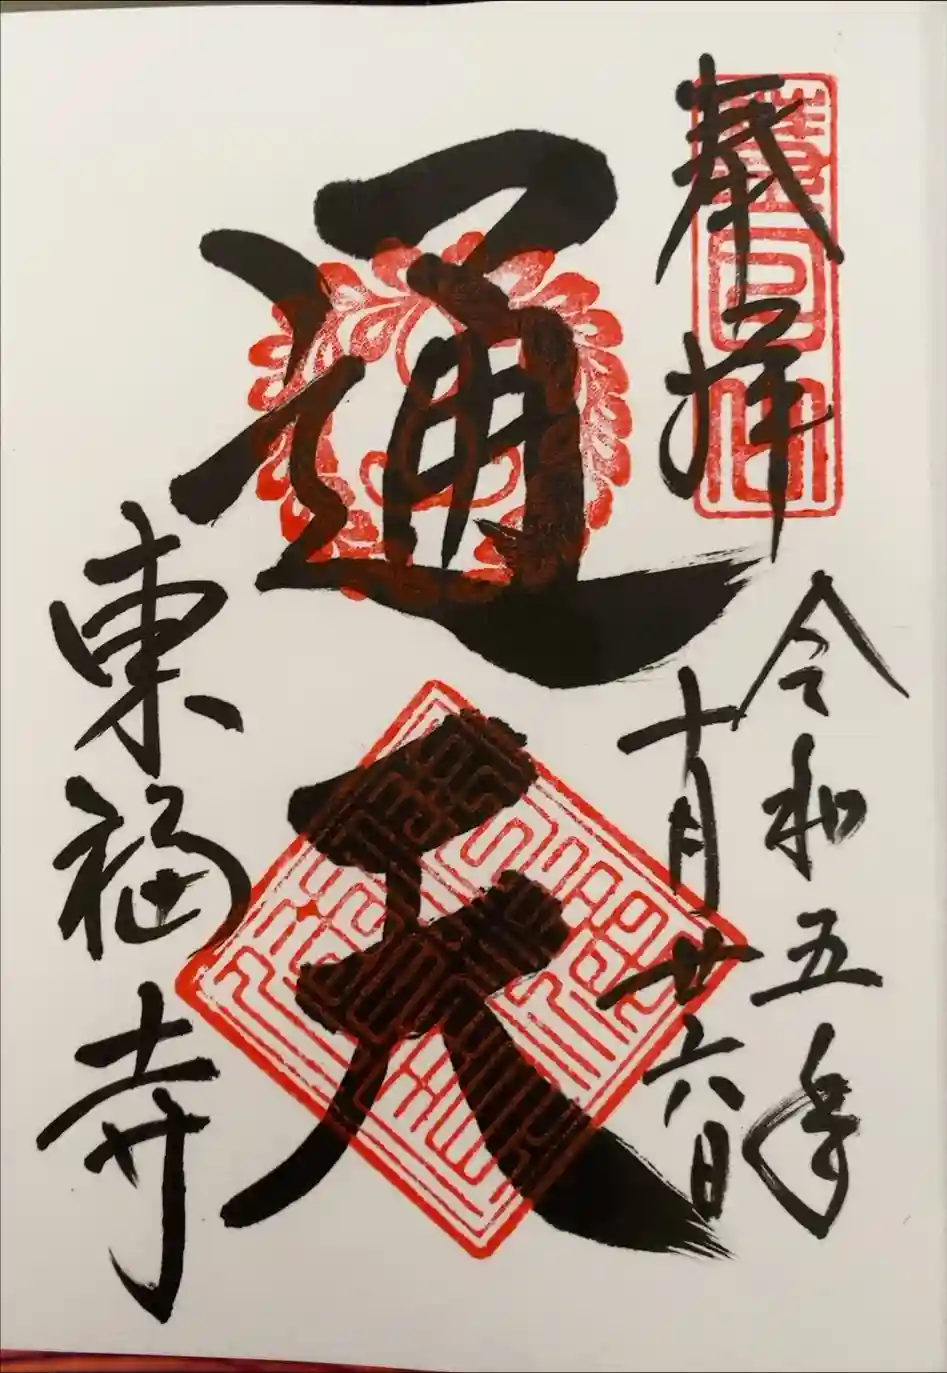 奉拝
令和五年
十月廿六日
通天
東福寺